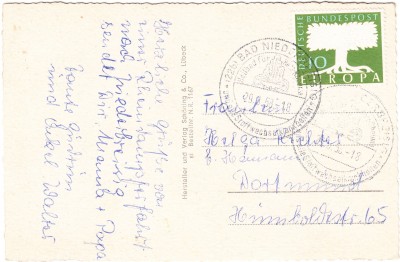 Herzliche Grüße von
einer Rheindampferfahrt
nach Niederbreisig
sendet dir Mama + Papa
Tante Gustchen
und Onkel Walter
Hersteller und Verlag: Schöning & Co., Lübeck
Bestellnr. N.R. 1167
DEUTSCHE BUNDESPOST
10
EUROPA
BAD NIED
Fräulein
Helga Richter
b/ Heumann
Dortmund
Humboldtstr. 65